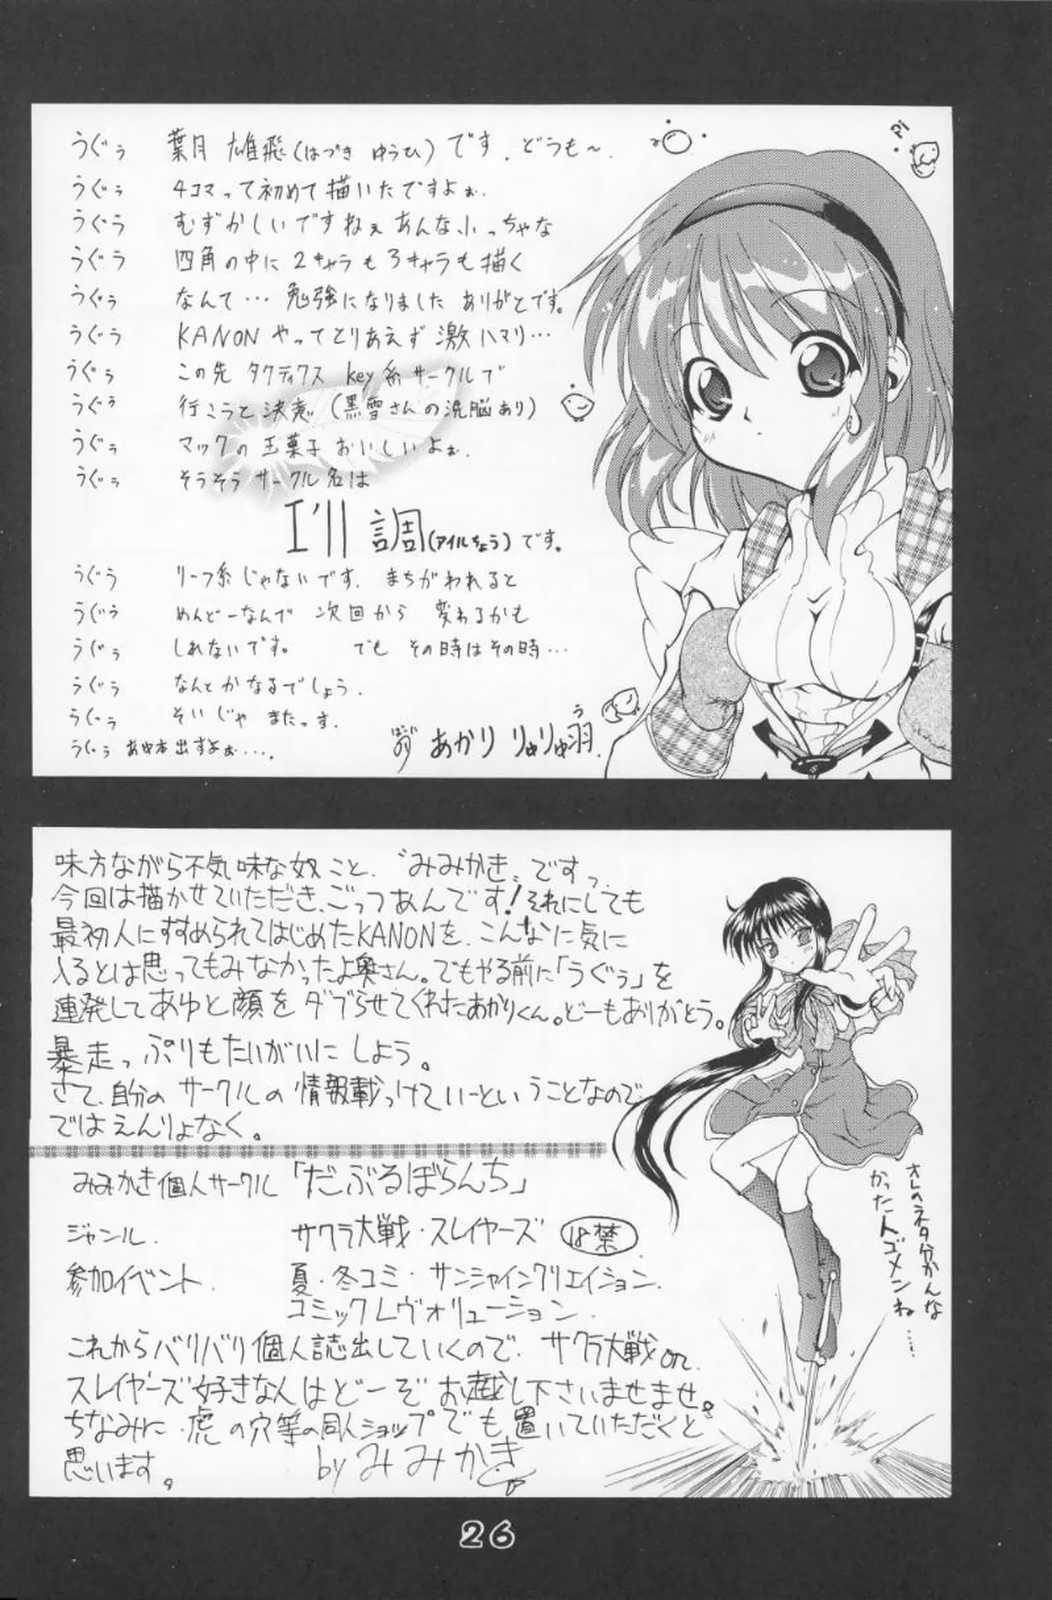 うぐぅ 葉月 雄飛(はづき ゆうひ)です。どうも〜.
うぐぅ 4コマって初めて描いたですよぉ.
うぐぅ むずかしいですねぇ あんな小っちゃな
うぐぅ 四角の中に2キャラも3キャラも描く
うぐぅ なんて… 勉強になりました ありがとです。
うぐぅ KANONやってとりあえず激ハマリ…
うぐぅ この先 タクティクス key系サークルで
うぐぅ 行こうと決意(黒雪さんの洗脳あり)
うぐぅ マックの玉菓子 おいしいよぉ.
うぐぅ そうそう サークル名は
I'll 調(アイルちょう)です。
うぐぅ リーフ系じゃないです. まちがわれると
うぐぅ めんどーなんで 次回から 変わるかも
うぐぅ しれないです。 でも その時はその時…
うぐぅ なんとかなるでしょう.
うぐぅ そいじゃ またっす.
うぐぅ あゆ本出すよぉ….
あかり りゅりゅ羽
味方ながら不気味な奴こと、"みみかき"ですっ.
今回は描かせていただき、ごっつあんです!それにしても
最初人にすすめられてはじめたKANONを、こんなに気に
入るとは思ってもみなかったよ奥さん。でもやる前に「うぐぅ」を
連発してあゆと顔をダブらせてくれたあかりくん。どーもありがとう。
暴走っぷりもたいがいにしよう。
さて、自分のサークルの情報載っけていーということなので
ではえんりょなく。
みみかき個人サークル「だぶるぼらんち」
ジャンル. サクラ大戦・スレイヤーズ 18禁
参加イベント. 夏・冬コミ・サンシャインクリエイション.
コミックレヴォリューション.
これからバリバリ個人誌出していくので、サクラ大戦or
スレイヤーズ好きな人はどーぞお越し下さいませませ。
ちなみに、虎の穴等の同人ショップでも置いていただくと
思います。 by みみかき
オレのネタ分かんな
かった人ゴメンね……
26